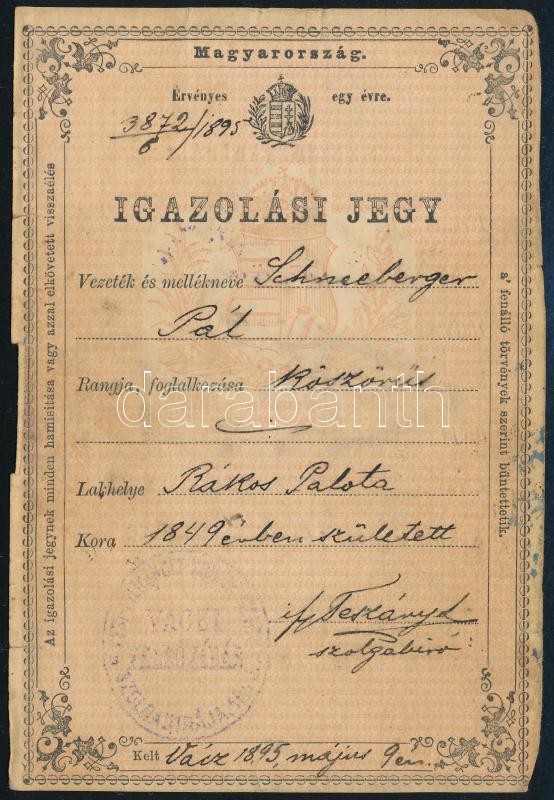 Magyarország.
Érvényes egy évre.
3872/6/1895
IGAZOLÁSI JEGY
Vezeték és mellékneve Schneeberger
Pál
Rangja, foglalkozása Köszörűs
darabanth
Lakhelye Rákos Palota
Kora 1849 évben született
ifj
szolgabíró
VÁCZI
FELSŐJÁRÁS
Kelt Vácz 1895, május 9én.
Az igazolási jegynek minden hamisitása vagy azzal elkövetett visszaélés
a' fenálló törvények szerint büntettetik.